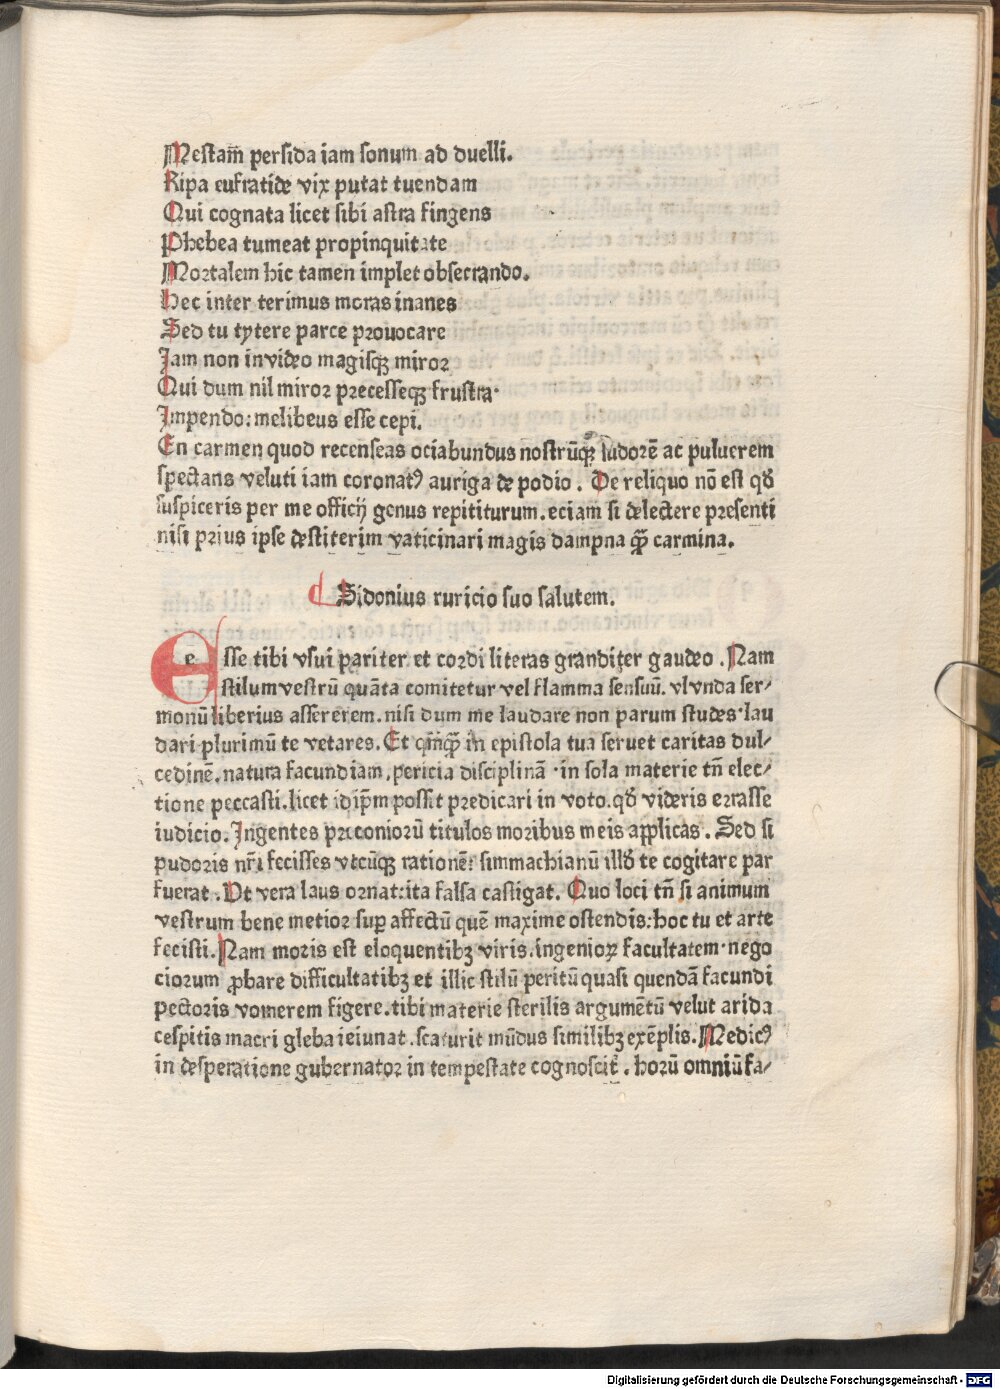 Mestam̄ persida iam sonum ad duelli.
Ripa eufratide vix putat tuendam
Qui cognata licet sibi astra fingens
Phebea tumeat propinquitate
Mortalem hic tamen implet obsecrando.
Hec inter terimus moras inanes
Sed tu tytere parce prouocare
Jam non invideo magisqꝫ miror
Qui dum nil miror precesseqꝫ frustra·
Jmpendo: melibeus esse cepi.
En carmen quod recenseas ociabundus nostrūqꝫ sudorē ac puluerem
spectans veluti iam coronatꝰ auriga de podio. De reliquo nō est qđ
suspiceris per me officij genus repititurum. eciam si delectere presenti
nisi prius ipse destiterim vaticinari magis dampna qꝫ̄ carmina.
d Sidonius ruricio suo salutem.
e sse tibi vsui pariter et cordi literas granditer gaudeo. Nam
stilum vestrū quāta comitetur vel flamma sensuū. vl vnda ser/
monū liberius assererem. nisi dum me laudare non parum studes· lau
dari plurimū te vetares. Et qm̄qꝫ̄ in epistola tua seruet caritas dul/
cedinē. natura facundiam, pericia disciplinā · in sola materie tn̄ elec/
tione peccasti. licet idip̄m possit predicari in voto. qđ videris errasse
iudicio. Jngentes preconiorū titulos moribus meis applicas. Sed si
pudoris nr̄i fecisses vtcūqꝫ rationē: simmachianū illđ te cogitare par
fuerat. Vt vera laus ornat: ita falsa castigat. Quo loci tn̄ si animum
vestrum bene metior sup̱ affectū quē maxime ostendis: hoc tu et arte
fecisti. Nam moris est eloquentibꝫ viris. ingenioꝝ facultatem· nego
ciorum ꝓbare difficultatibꝫ et illic stilū peritū quasi quendā facundi
pectoris vomerem figere. tibi materie sterilis argumētū velut arida
cespitis macri gleba ieiunat. scaturit mūdus similibꝫ exēplis. Medicꝰ
in desperatione gubernator in tempestate cognoscit̄. horū omniū fa/
Digitalisierung gefördert durch die Deutsche Forschungsgemeinschaft - DFG